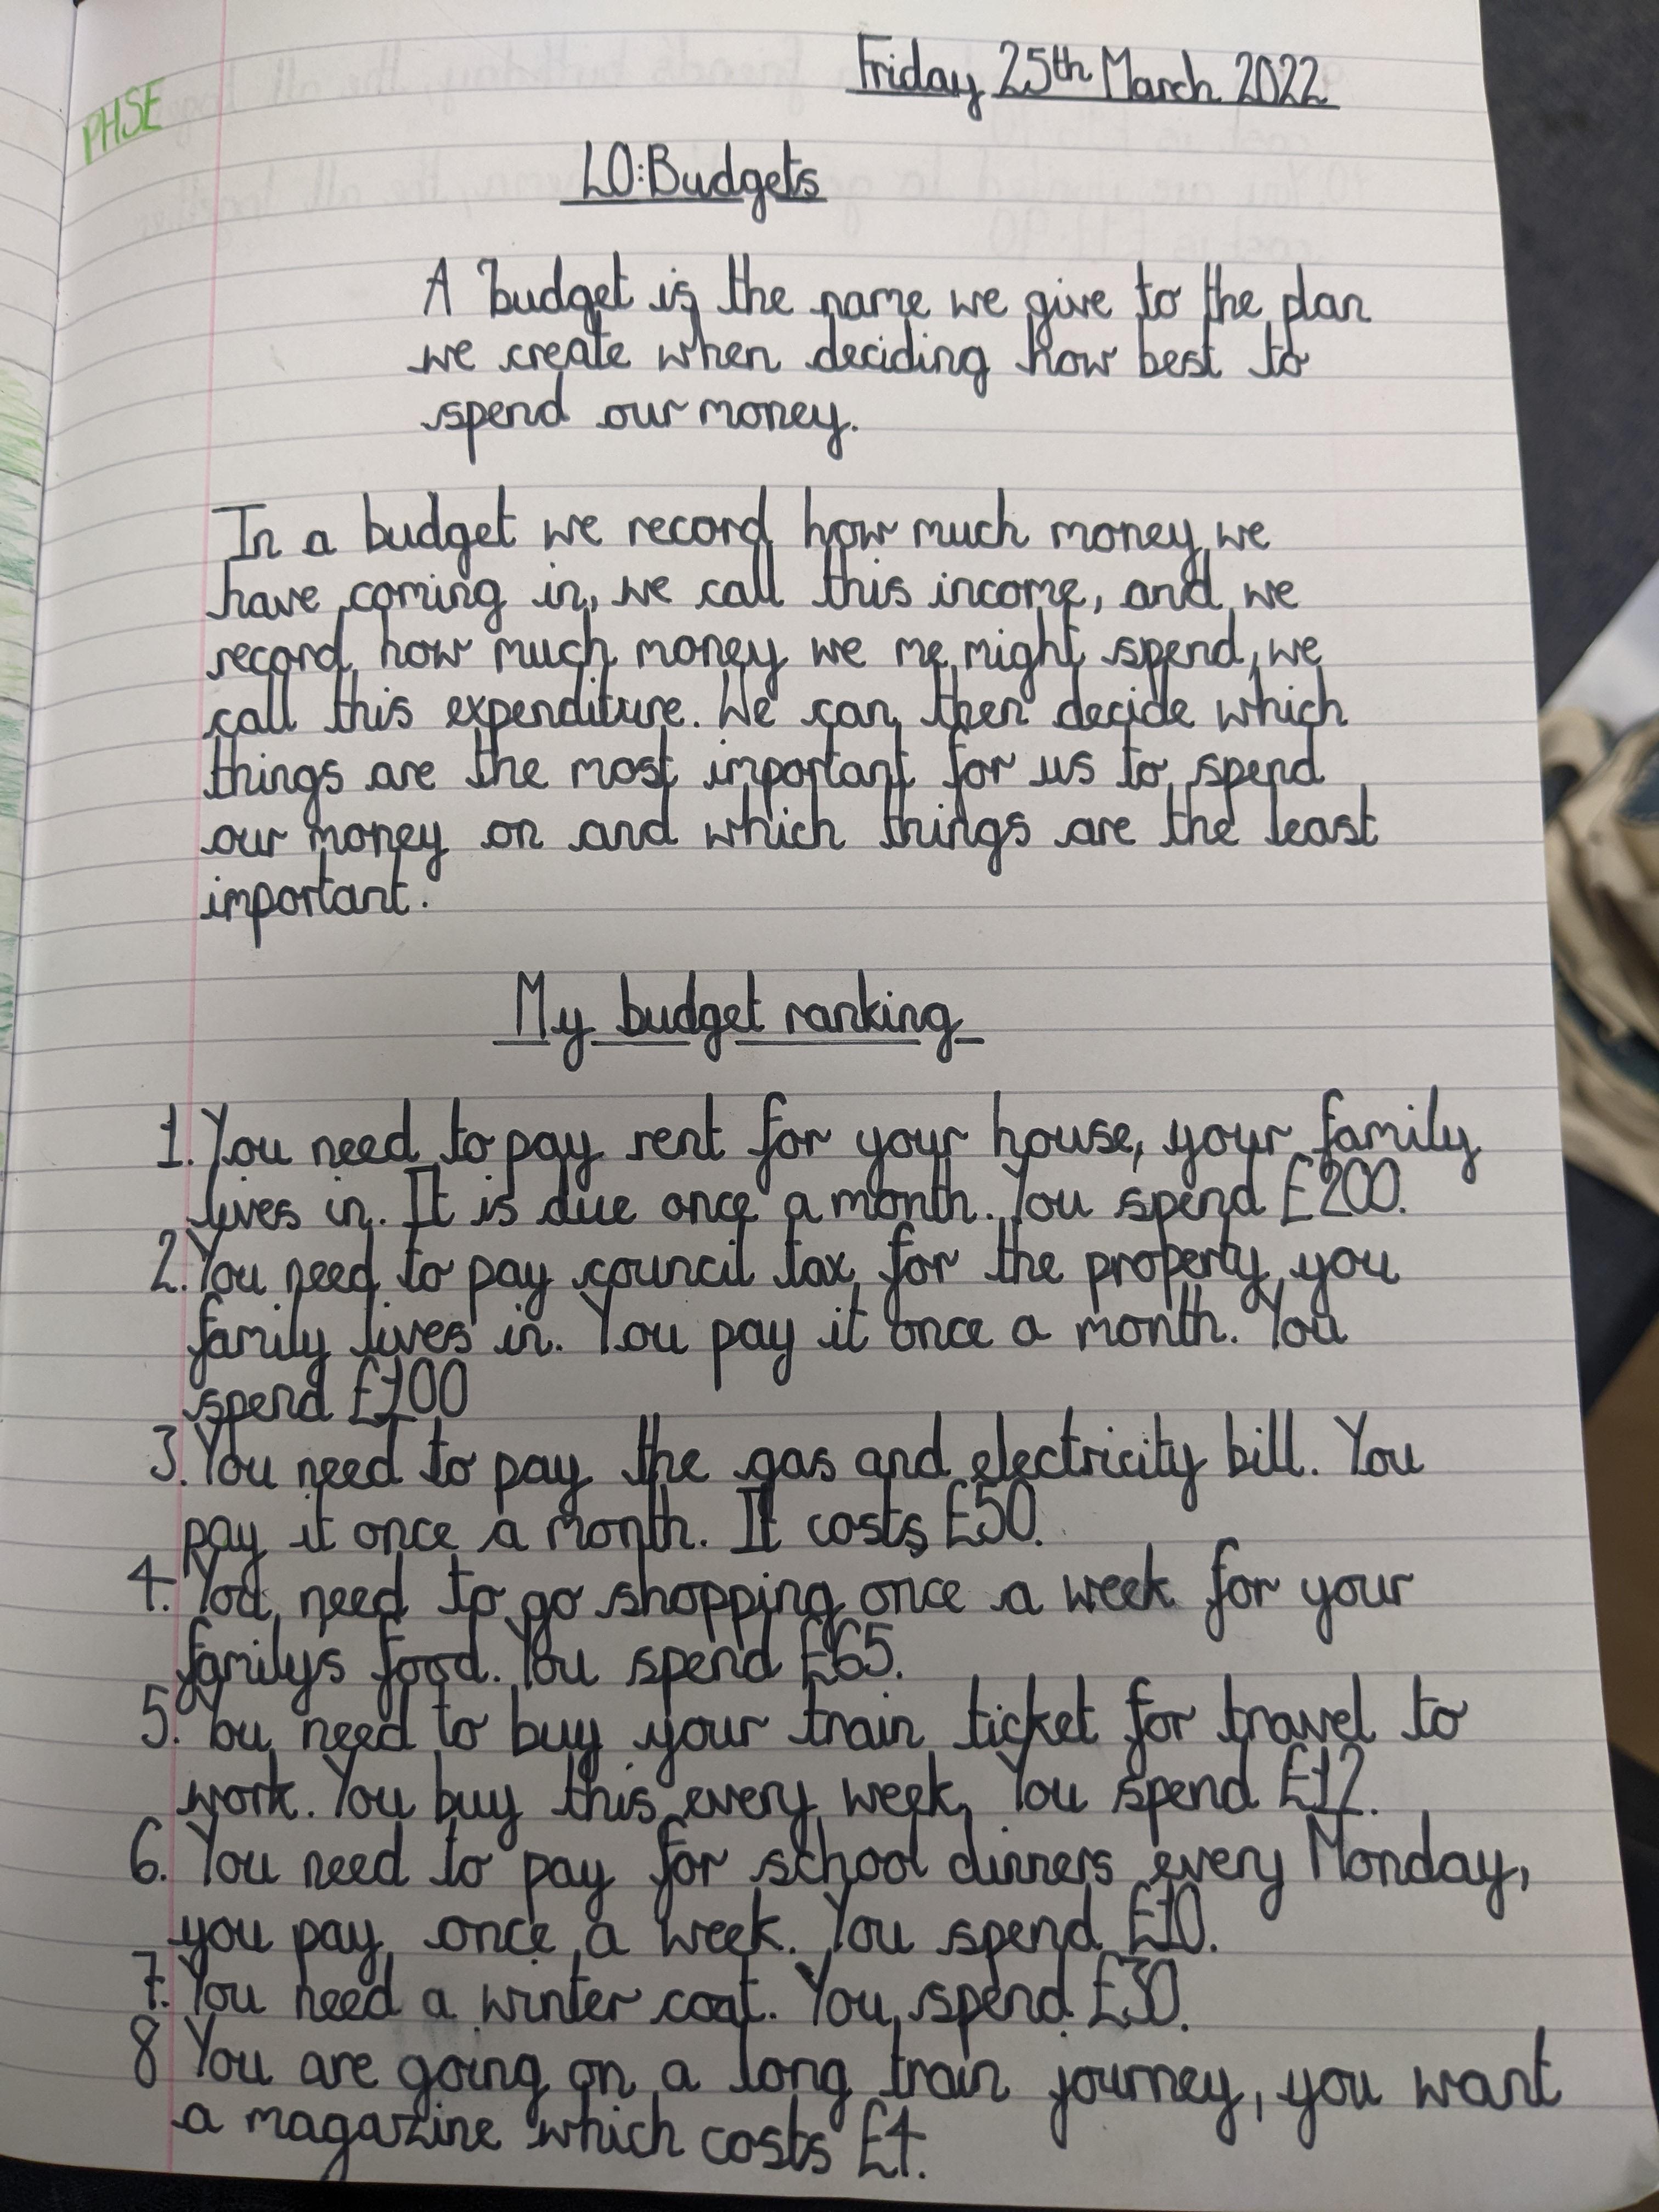 Friday 25th March 2022
PHSE
LO: Budgets
A budget is the name we give to the plan
we create when deciding how best to
spend our money.
In a budget we record how much money we
have coming in, we call this income, and we
record how much money we me might spend, we
call this expenditure. We can then decide which
things are the most important for us to spend
our money on and which things are the least
important.
My budget ranking
1. You need to pay rent for your house, your family
lives in. It is due once a month. You spend £200.
2. You need to pay council tax for the property you
family lives in. You pay it once a month. You
spend £100
3. You need to pay the gas and electricity bill. You
pay it once a month. It costs £50.
4. You need to go shopping once a week for your
familys food. You spend £65.
5. You need to buy your train ticket for travel to
work. You buy this every week, You spend £12.
6. You need to pay for school dinners every Monday,
you pay once a week. You spend £10.
7. You need a winter coat. You spend £30.
8 You are going on a long train journey, you want
a magazine which costs £4.